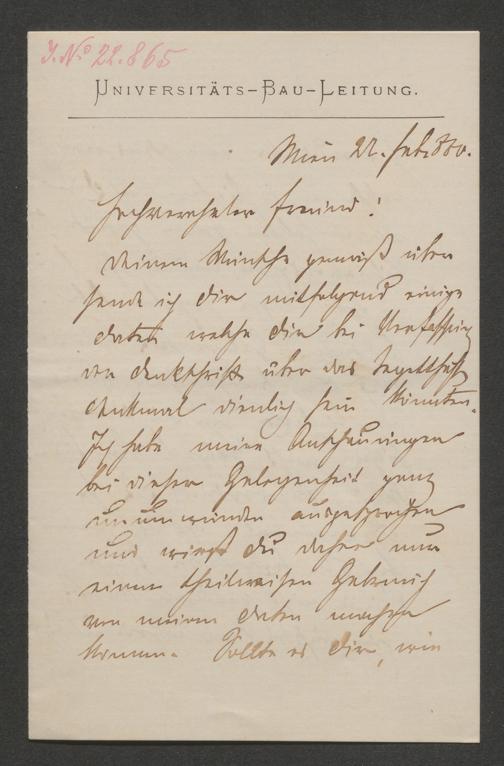 J. No 22.865
UNIVERSITÄTS-BAU-LEITUNG.
Wien 22. Feb. 880.
Hochverehrter Freund!
Deinem Wunsche gemäß über
sende ich dir mitfolgend einige
Daten welche dir bei Verfassung
der Denkschrift über das Tegetthoff
denkmal dienlich sein könnten.
Ich habe meine Anschauungen
bei dieser Gelegenheit ganz
unumwunden ausgesprochen
und wirst du daher nur
einen theilweisen Gebrauch
von meinen Daten machen
können. Sollte es dir, wie